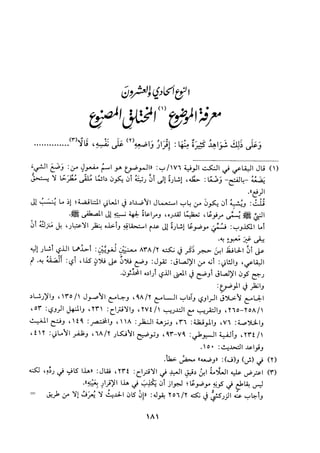 النوع الحادي والعشرون
معرفة الموضوع(١) المختلق المصنوع
وَعَلَى ذَلِكَ شَوَاهِدُ كَثِيرَةٌ مِنْهَا: إِقْرَارُ وَاضِعِهِ(٢) عَلَى نَفْسِهِ، قَالَا(٣)
(١) قال البقاعي في النكت الوفية ١٧٦/ب: «الموضوع هو اسم مفعول من: وضع الشيء،
يضعه -بالفتح- وضعًا: حطه، إشارة إلى أن رتبته أن يكون دائمًا ملقى مطرحًا لا يستحق
الرفع».
قلت: ويشبه أن يكون من باب استعمال الأضداد في المعاني المتناقضة؛ إذ ما ينسب إلى
النبي ﷺ يسمى مرفوعًا، تعظيمًا لقدره، ومراعاة لجهة نسبته إلى المصطفى ﷺ.
أما المكذوب: فسمي موضوعًا إشارة إلى عدم استحقاقه وأخذه بنظر الاعتبار، بل منزلته أن
يبقى غير معبوء به.
على أن الحافظ ابن حجر ذكر في نكته ٨٣٨/٢ معنيين لغويين: أحدهما الذي أشار إليه
البقاعي، والثاني: أنه من الإلصاق: تقول: وضع فلان على فلان كذا، أي: ألصقه به. ثم
رجح كون الإلصاق أوضح في المعنى الذي أراده المحدثون.
وانظر في الموضوع:
الجامع لأخلاق الراوي وآداب السامع ٩٨/٢، وجامع الأصول ١٣٥/١، والإرشاد
٢٥٨/١-٢٦٥، والتقريب مع التدريب ٢٧٤/١، والاقتراح: ٢٣١، والمنهل الروي: ٥٣،
والخلاصة: ٧٦، والموقظة: ٣٦، ونزهة النظر: ١١٨، والمختصر: ١٤٩، وفتح المغيث
٢٣٤/١، وألفية السيوطي: ٧٩-٩٣، وتوضيح الأفكار ٦٨/٢، وظفر الأماني: ٤١٢،
وقواعد التحديث: ١٥٠.
(٢) في (ش) و(ف): «وضعه» محض خطأ.
(٣) اعترض عليه العلامة ابن دقيق العيد في الاقتراح: ٢٣٤، فقال: «هذا كافٍ في رده، لكنه
ليس بقاطع في كونه موضوعًا؛ لجواز أن يكذب في هذا الإقرار بعينه».
وأجاب عنه الزركشي في نكته ٢٥٦/٢ بقوله: «إن كان الحديث لا يعرف إلا من طريق =
١٨١